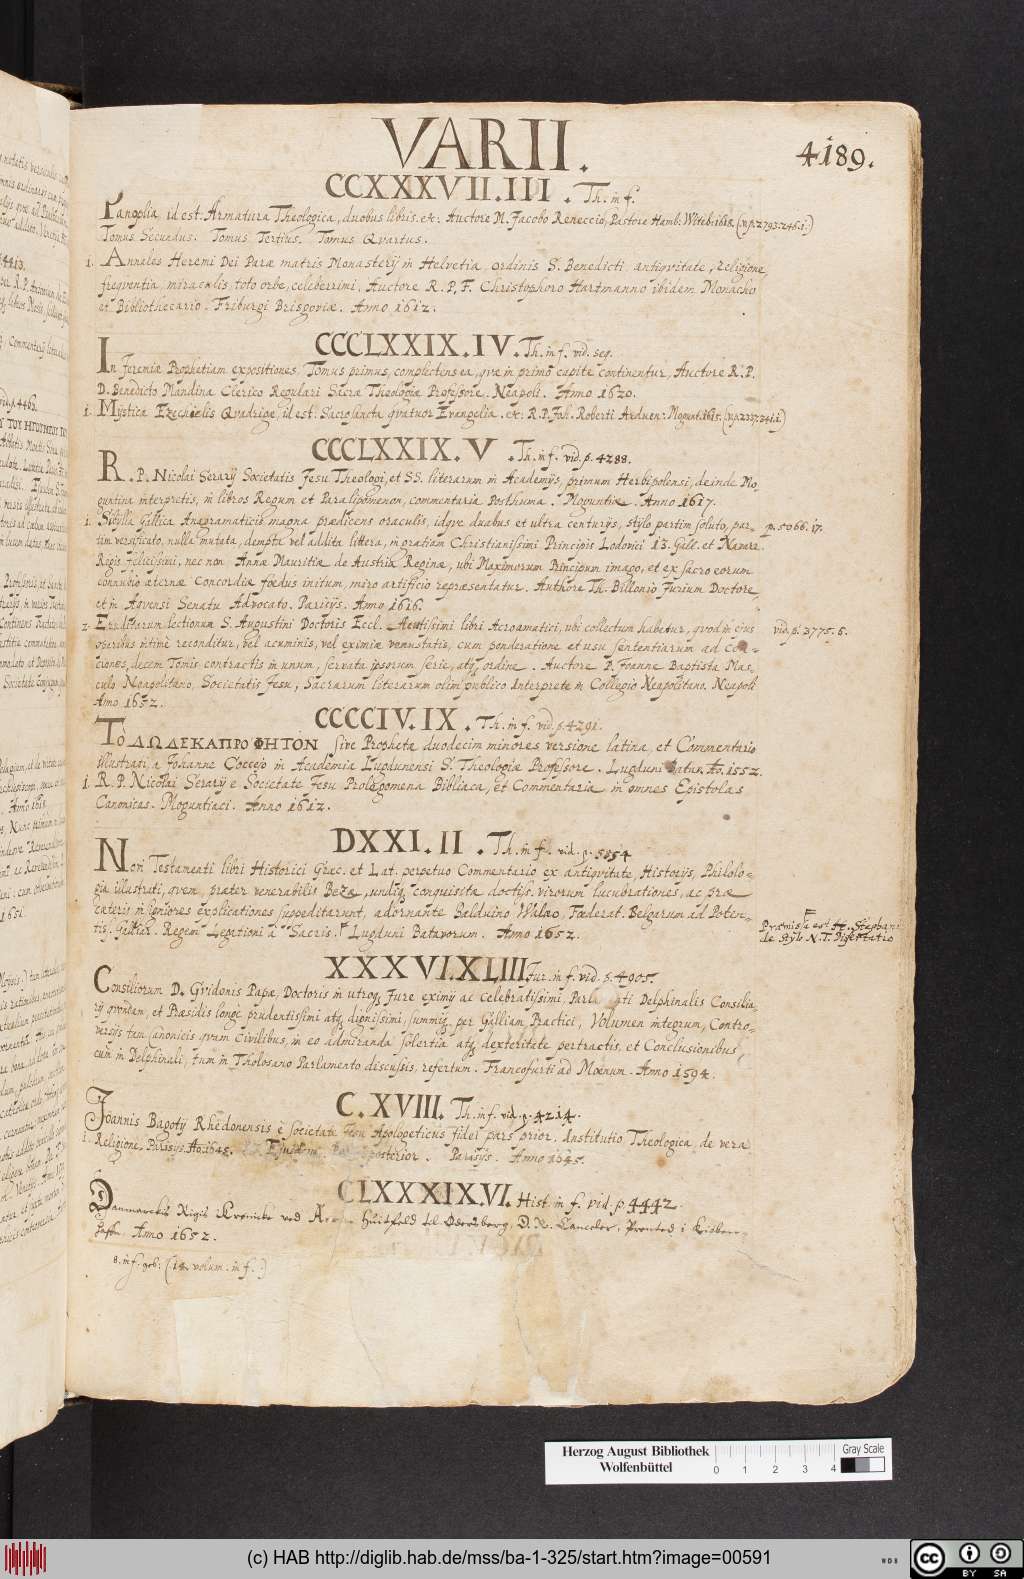 VARII.
4189.
CCXXXVII.III. Th. in f.
Panoplia id est: Armatura Theologica, duobus libris. &c: Auctore M. Jacobo Reneccio, Pastore Hamb. Witeb: 1618. (v.p. 2793. 246. 1.)
Tomus Secundus. Tomus Tertius. Tomus Qvartus.
1. Annales Heremi Dei Paræ matris Monasterij in Helvetia ordinis S. Benedicti antiqvitate, religione,
freqventia, miraculis, toto orbe, celeberrimi, Auctore R. P. F. Christophoro Hartmanno ibidem Monacho
et Bibliothecario. Friburgi Brisgoviæ. Anno 1612.
CCCLXXIX.IV. Th. in f. vid. seq.
In Jeremiæ Prophetiam expositiones, Tomus primus, complectens ea, qvæ in primo capite continentur, Auctore R. P.
D. Benedicto Mandina Clerico Regulari Sacræ Theologiæ Professore. Neapoli. Anno 1620.
1. Mystica Ezechielis Qvadriga, id est: Sacrosancta qvatuor Evangelia. &c: R. P. Joh. Roberti Arduen: Mogunt. 1615. (v.p. 2337. 241. 1.)
CCCLXXIX.V. Th. in f. vid. p. 4288.
R. P. Nicolai Serarij Societatis Jesu Theologi, et SS. literarum in Academijs, primum Herbipolensi, deinde Mo-
guntina interpretis, in libros Regum et Paralipomenon, commentaria Posthuma. Moguntiæ. Anno 1617.
1. Sibylla Gallica Anagramaticis magna prædicens oraculis, idqve duabus et ultra centurijs, stylo, partim soluto, par- p. 5066. 17.
tim versificato, nulla mutata, dempta vel addita littera, in gratiam Christianissimi Principis Lodovici 13. Gall. et Navarr.
Regis felicissimi, nec non Annæ Mauritiæ de Austria Reginæ, ubi Maximorum Principum imago, et ex sacro eorum
connubio æternæ Concordiæ fœdus initum, miro artificio repræsentatur. Authore Th. Billonio Jurium Doctore,
et in Aqvensi Senatu Advocato. Parisijs. Anno 1616.
2. Eruditarum lectionum S. Augustini Doctoris Eccl. Acutissimi libri Acroamatici, ubi collectum habetur, qvod in ejus vid. p. 3775. 5.
operibus intimè reconditur, vel acuminis, vel eximiæ venustatis, cum ponderatione et usu sententiarum ad Con-
ciones, decem Tomis contractis in unum, servata ipsorum serie, atq; ordine. Auctore P. Joanne Baptista Mas-
culo Neapolitano, Societatis Jesu, Sacrarum literarum olim publico Interprete in Collegio Neapolitano. Neapoli
Anno 1652.
CCCCIV.IX. Th. in f. vid. p. 4291.
Τὸ ΔΩΔΕΚΑΠΡΟΦΗΤΟΝ sive Prophetæ duodecim minores, versione latina, et Commentario
illustrati, à Johanne Coccejo in Academia Lugdunensi S. Theologiæ Professore. Lugduni Batav. Ao. 1652.
1. R. P. Nicolai Serarij è Societate Jesu Prolegomena Bibliaca, et Commentaria in omnes Epistolas
Canonicas. Moguntiaci. Anno 1612.
DXXI.II. Th. in f. vid. p. 5054
Novi Testamenti libri Historici Græc. et Lat. perpetuo Commentario ex antiqvitate, Historijs, Philolo-
gia illustrati, qvem, præter venerabilis Bezæ, undiq; conquisitæ doctiss. virorum lucubrationes, ac præ
cæteris insigniores explicationes suppeditarunt, adornante Balduino Walæo, Fœderat. Belgarum ad Poten-
tis. Galliar. Regem Legationi à Sacris. F Lugduni Batavorum. Anno 1652.
F
Præmissa est H. Stephani
de Stylo N. T. Dissertatio
XXXVI.XLIII. Jur. in f. vid. p. 4905.
Consiliorum D. Gvidonis Papæ, Doctoris in utroq; Jure eximij ac celebratissimi, Parlamenti Delphinalis Consilia-
rij qvondam, et Præsidis longe prudentissimi atq; dignissimi, summiq; per Galliam Practici, Volumen integrum, Contro-
versijs tam Canonicis qvam Civilibus, in eo admiranda solertia atq; dexteritate pertractis, et Conclusionibus,
cum in Delphinali, tum in Tholosano Parlamento discussis, refertum. Francofurti ad Mœnum. Anno 1594.
C.XVIII. Th. in f. vid. p. 4214.
Joannis Bagotij Rhedonensis è societate Jesu Apologeticus fidei pars prior. Institutio Theologica, de vera
1. Religione. Parisijs. Ao. 1645. Ejusdem Pars posterior. Parisijs. Anno 1645.
CLXXXIX.VI. Hist. in f. vid. p. 4442
Danmarckis Rigis Krønicke ved Huitfeld til Odersberg, D. R. Canceler, Prented i Kiøben-
haffn. Anno 1652.
8. in f. geb: (14 volum. in f.)
Herzog August Bibliothek
Wolfenbüttel
0 1 2 3 4
Gray Scale
(c) HAB http://diglib.hab.de/mss/ba-1-325/start.htm?image=00591
WDB
cc BY SA